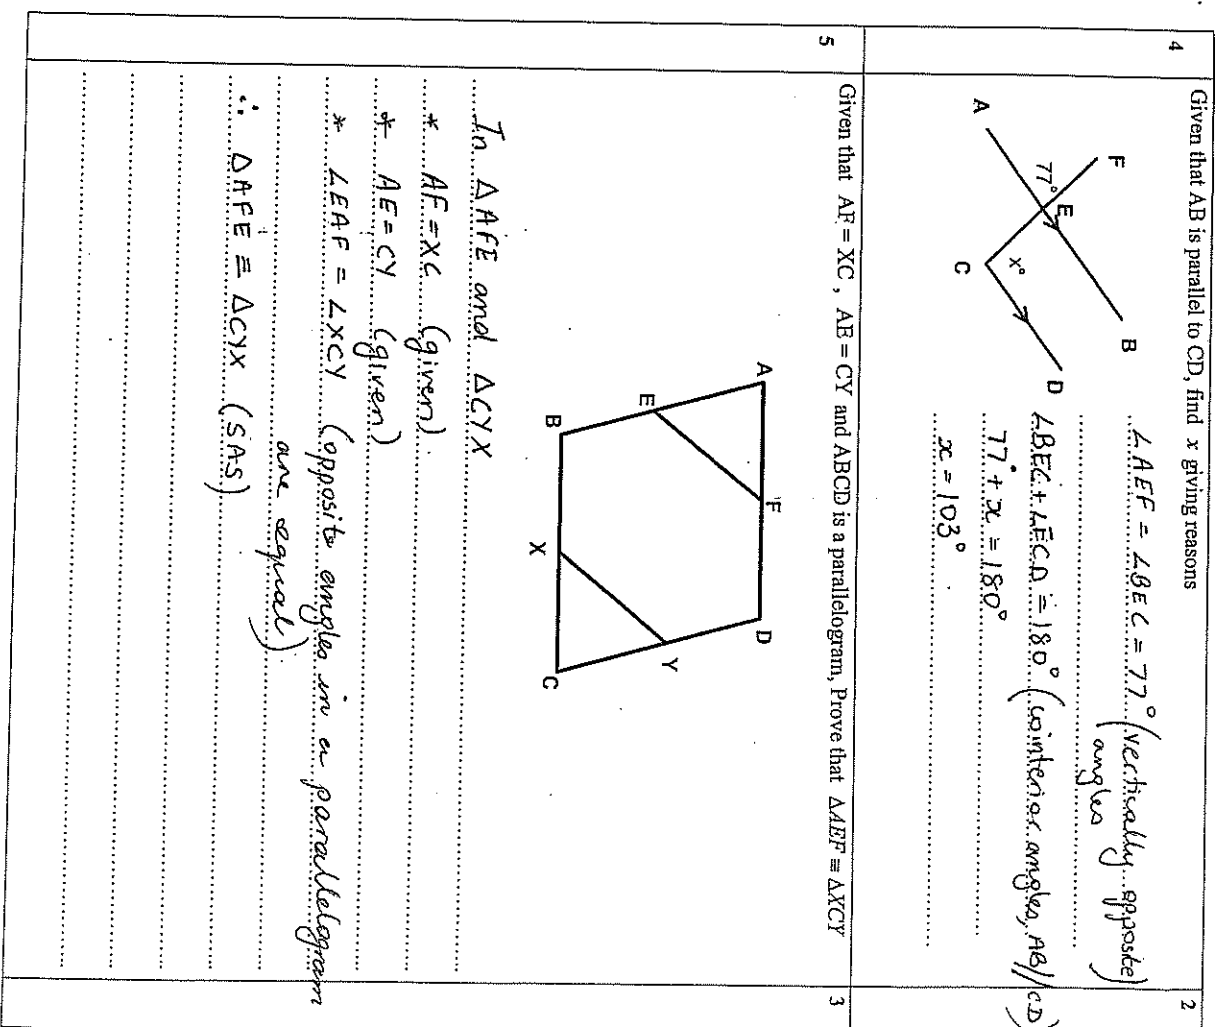 4
Given that AB is parallel to CD, find x giving reasons
2
F
B
77°
E
A
x°
D
C
∠AEF = ∠BEC = 77° (vertically opposite
angles)
∠BEC + ∠ECD = 180° (cointerior angles, AB//CD)
77° + x = 180°
x = 103°
5
Given that AF = XC , AE = CY and ABCD is a parallelogram, Prove that ΔAEF ≡ ΔXCY
3
A
F
D
E
Y
B
X
C
In ΔAFE and ΔCYX
* AF = XC (given)
* AE = CY (given)
* ∠EAF = ∠XCY (opposite angles in a parallelogram
are equal)
∴ ΔAFE ≡ ΔCYX (SAS)